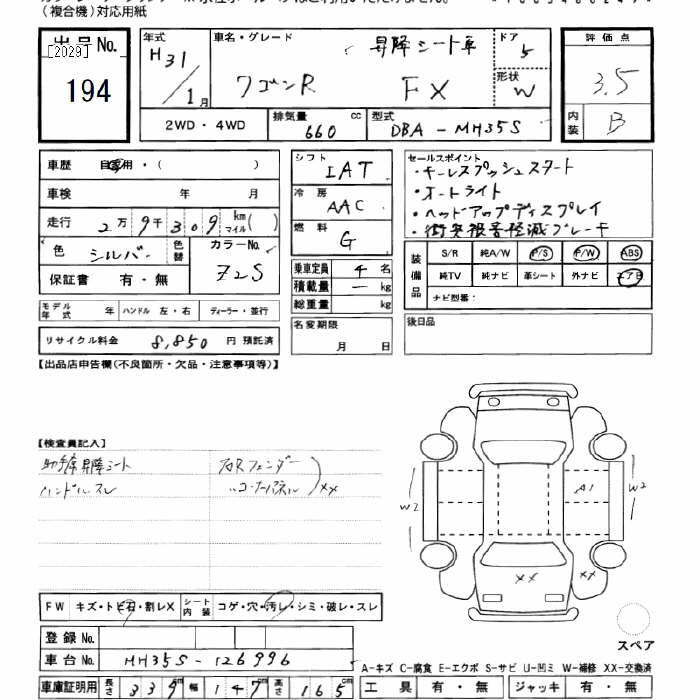 (複合機)対応用紙
出品No.
[2029]
194
年式 H31/1月
車名・グレード 昇降シート車
ワゴンR FX
ドア 5
形状 W
評価点 3.5
内装 B
2WD・4WD
排気量 660 cc
型式 DBA-MH35S
車歴 自家用・( )
車検 年 月
走行 2万9千309 km マイル( )
色 シルバー 色替
カラーNo. Z2S
保証書 有・無
モデル年式 年 ハンドル 左・右 ディーラー・並行
リサイクル料金 8,850 円 預託済
シフト IAT
冷房 AAC
燃料 G
乗車定員 4 名
積載量 — kg
総重量 kg
名変期限 月 日
セールスポイント
・キーレスプッシュスタート
・オートライト
・ヘッドアップディスプレイ
・衝突被害軽減ブレーキ
装備品
S/R 純A/W P/S P/W ABS
純TV 純ナビ 革シート 外ナビ エアB
ナビ型番:
後日品
【出品店申告欄(不良箇所・欠品・注意事項等)】
【検査員記入】
助手席昇降シート
ハンドルスレ
右Rフェンダー
〃コーナーパネル
XX
W2
A1
W2
XX
XX
FW キズ・トビ石・割レX
シート内装 コゲ・穴・汚レ・シミ・破レ・スレ
登録No.
車台No. MH35S-126996
車庫証明用 長さ 339cm 幅 147cm 高さ 165cm
スペア
A-キズ C-腐食 E-エクボ S-サビ U-凹ミ W-補修 XX-交換済
工具 有・無 ジャッキ 有・無